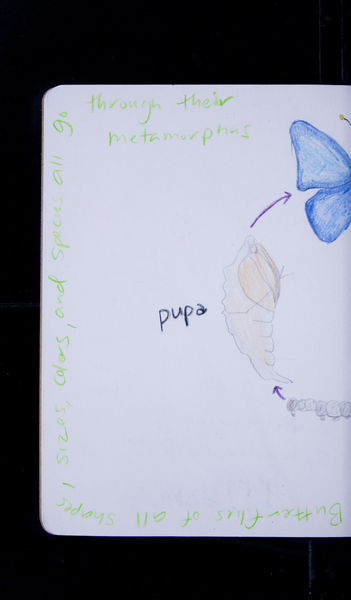 Butterflies of all shapes,
sizes, colors, and species all go
through their
metamorphus
pupa